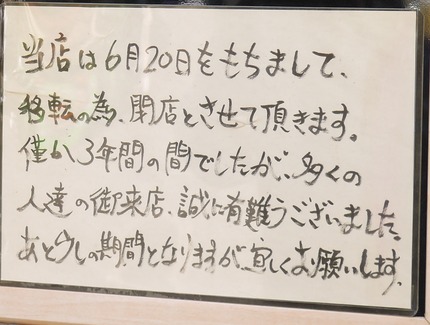 当店は6月20日をもちまして、
移転の為、閉店とさせて頂きます。
僅か3年間の間でしたが、多くの
人達の御来店、誠に有難うございました。
あと少しの期間となりますが、宜しくお願いします。